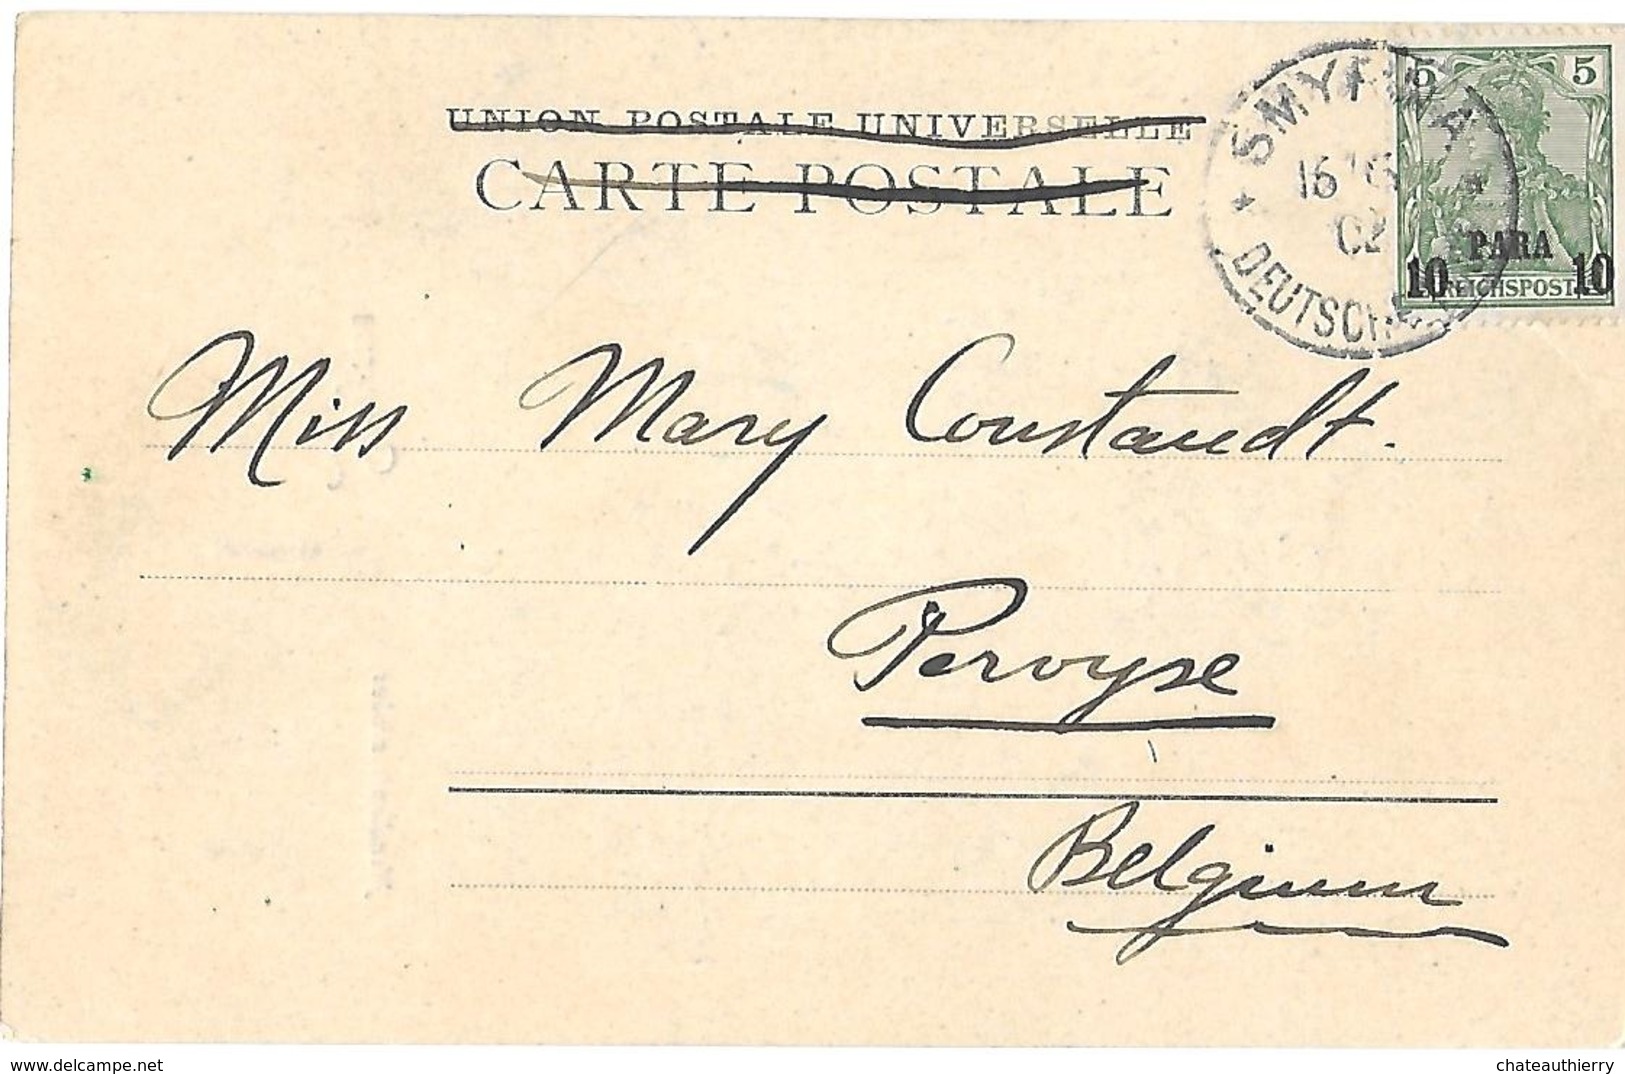 UNION POSTALE UNIVERSELLE
CARTE POSTALE
SMYRNA
16
02
DEUTSCHE
5 5
PARA
10 10
REICHSPOST
Miss Mary Constandt.
Pervyse
Belgium
chateauthierry